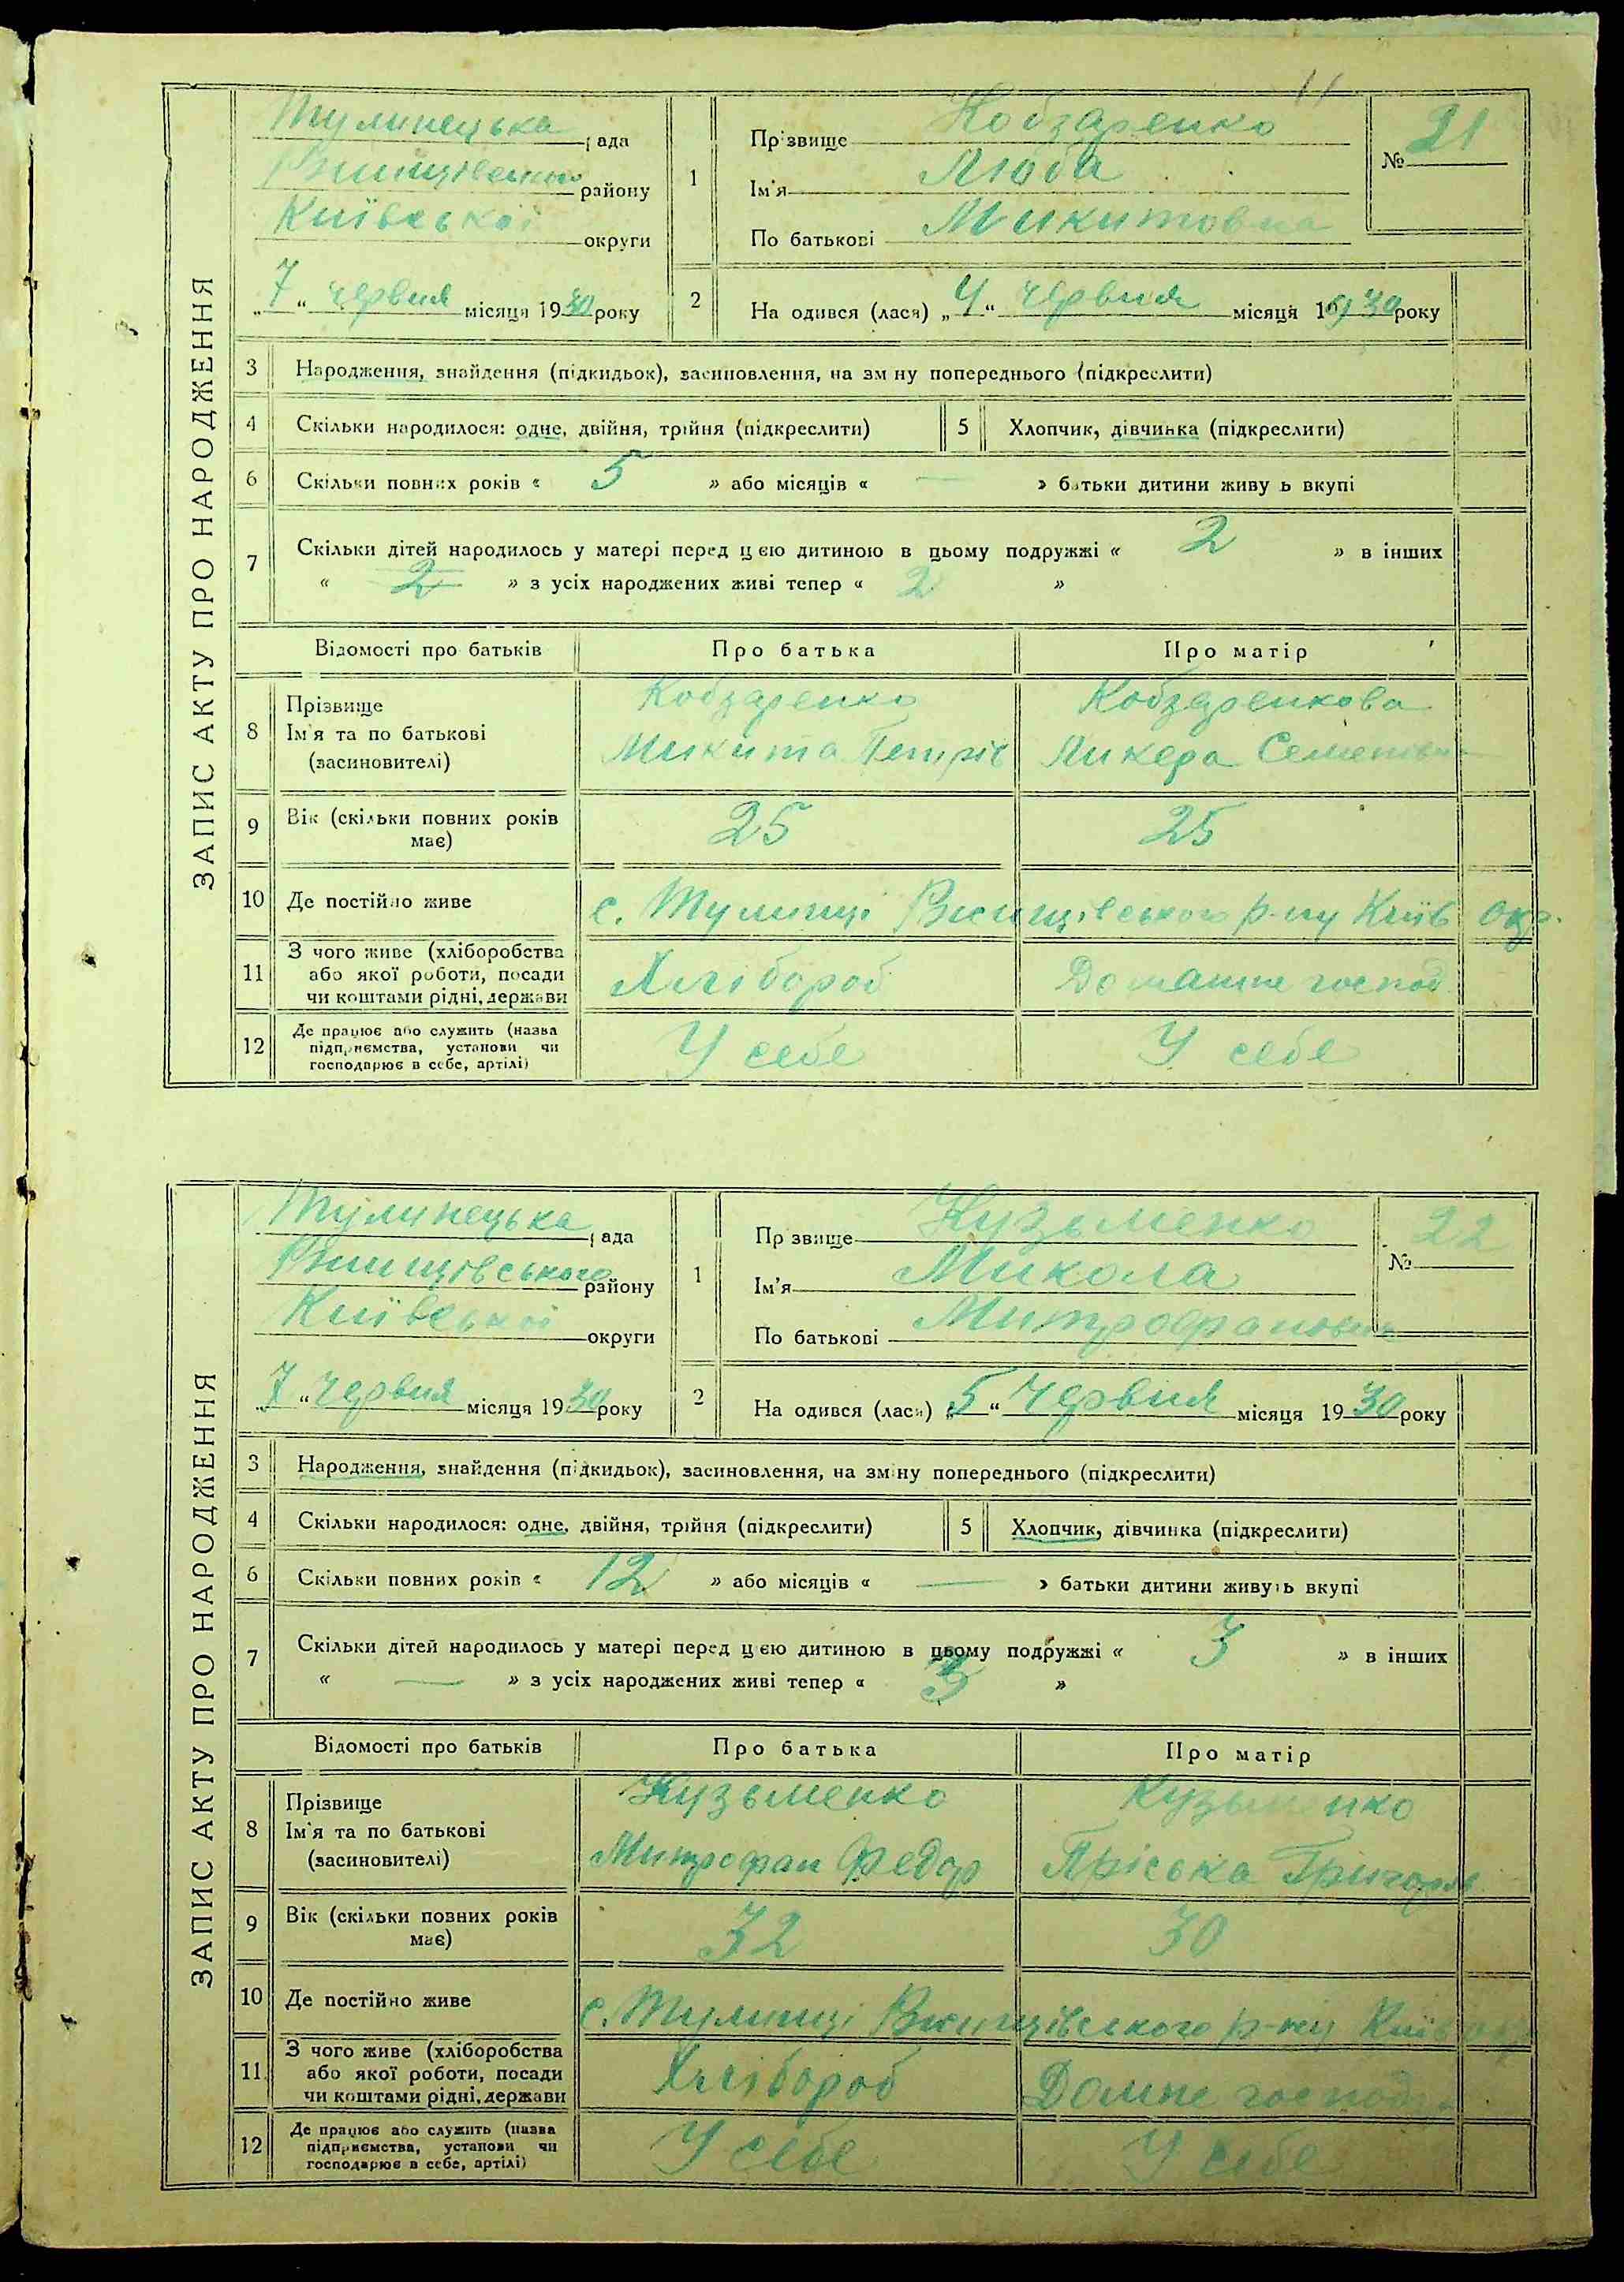 11
ЗАПИС АКТУ ПРО НАРОДЖЕННЯ
Тулинецька рада
Ржищівського району
Київської округи
„7“ червня місяця 1930 року
1 Прізвище Кобзаренко
Ім'я Люба
По батькові Микитовна
№ 21
2 Народився (лася) „4“ червня місяця 1930 року
3 Народження, знайдення (підкидьок), засиновлення, на зміну попереднього (підкреслити)
4 Скільки народилося: одне, двійня, трійня (підкреслити) 5 Хлопчик, дівчинка (підкреслити)
6 Скільки повних років « 5 » або місяців « — » батьки дитини живуть вкупі
7 Скільки дітей народилось у матері перед цією дитиною в цьому подружжі « 2 » в інших
« 2 » з усіх народжених живі тепер « 2 »
Відомості про батьків Про батька Про матір
8 Прізвище Кобзаренко Кобзаренкова
Ім'я та по батькові Микита Петрів Ликера Семенівна
(засиновителі)
9 Вік (скільки повних років 25 25
має)
10 Де постійно живе с. Тулинці Ржищівського р-ну Київ окр.
11 З чого живе (хліборобства
або якої роботи, посади Хлібороб Домашнє господ.
чи коштами рідні, держави
12 Де працює або служить (назва
підприємства, установи чи У себе У себе
господарює в себе, артілі)
ЗАПИС АКТУ ПРО НАРОДЖЕННЯ
Тулинецька рада
Ржищівського району
Київської округи
„7“ червня місяця 1930 року
1 Прізвище Кузьменко
Ім'я Микола
По батькові Митрофанович
№ 22
2 Народився (лася) „5“ червня місяця 1930 року
3 Народження, знайдення (підкидьок), засиновлення, на зміну попереднього (підкреслити)
4 Скільки народилося: одне, двійня, трійня (підкреслити) 5 Хлопчик, дівчинка (підкреслити)
6 Скільки повних років « 12 » або місяців « — » батьки дитини живуть вкупі
7 Скільки дітей народилось у матері перед цією дитиною в цьому подружжі « 3 » в інших
« — » з усіх народжених живі тепер « 3 »
Відомості про батьків Про батька Про матір
8 Прізвище Кузьменко Кузьменко
Ім'я та по батькові Митрофан Федор Пріська Григорів
(засиновителі)
9 Вік (скільки повних років 32 30
має)
10 Де постійно живе с. Тулинці Ржищівського р-ну Київ окр
11 З чого живе (хліборобства
або якої роботи, посади Хлібороб Домнє господ
чи коштами рідні, держави
12 Де працює або служить (назва
підприємства, установи чи У себе У себе
господарює в себе, артілі)